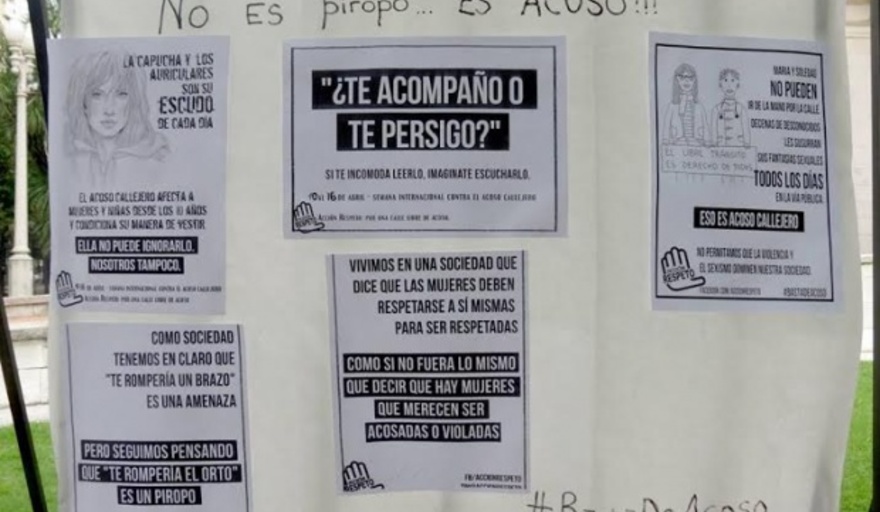 No ES piropo... ES ACOSO!!!
LA CAPUCHA Y LOS
AURICULARES
SON SU
ESCUDO
DE CADA DÍA
EL ACOSO CALLEJERO AFECTA A
MUJERES Y NIÑAS DESDE LOS 10 AÑOS
Y CONDICIONA SU MANERA DE VESTIR
ELLA NO PUEDE IGNORARLO.
NOSOTROS TAMPOCO.
SEMANA INTERNACIONAL CONTRA EL ACOSO CALLEJERO
ACCIÓN RESPETO: POR UNA CALLE LIBRE DE ACOSO
"¿TE ACOMPAÑO O
TE PERSIGO?"
SI TE INCOMODA LEERLO, IMAGINATE ESCUCHARLO.
16 DE ABRIL - SEMANA INTERNACIONAL CONTRA EL ACOSO CALLEJERO
ACCIÓN RESPETO: POR UNA CALLE LIBRE DE ACOSO.
RESPETO
MARIA Y SOLEDAD
NO PUEDEN
IR DE LA MANO POR LA CALLE.
DECENAS DE DESCONOCIDOS
LES SUSURRAN
SUS FANTASIAS SEXUALES
TODOS LOS DÍAS
EN LA VIA PUBLICA.
EL LIBRE TRANSITO
ES DERECHO DE TODAS
ESO ES ACOSO CALLEJERO
NO PERMITAMOS QUE LA VIOLENCIA Y
EL SEXISMO DOMINEN NUESTRA SOCIEDAD.
RESPETO
FACEBOOK.COM/ACCIONRESPETO
#BASTADEACOSO
COMO SOCIEDAD
TENEMOS EN CLARO QUE
"TE ROMPERÍA UN BRAZO"
ES UNA AMENAZA
PERO SEGUIMOS PENSANDO
QUE "TE ROMPERÍA EL ORTO"
ES UN PIROPO
VIVIMOS EN UNA SOCIEDAD QUE
DICE QUE LAS MUJERES DEBEN
RESPETARSE A SÍ MISMAS
PARA SER RESPETADAS
COMO SI NO FUERA LO MISMO
QUE DECIR QUE HAY MUJERES
QUE MERECEN SER
ACOSADAS O VIOLADAS
RESPETO
FB/ACCIONRESPETO